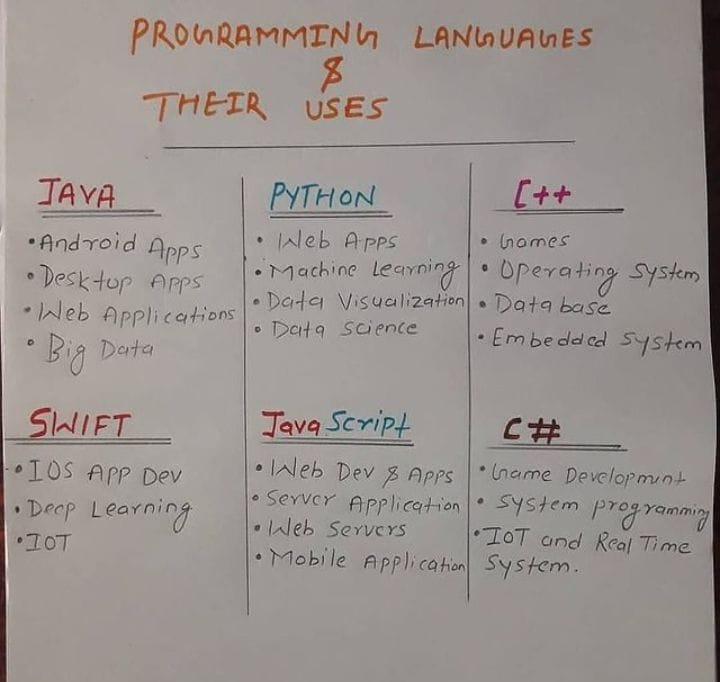 PROGRAMMING LANGUAGES
&
THEIR USES
JAVA
• Android Apps
• Desktop Apps
• Web Applications
• Big Data
PYTHON
• Web Apps
• Machine Learning
• Data Visualization
• Data Science
C++
• Games
• Operating System
• Database
• Embedded System
SWIFT
• IOS APP DEV
• Deep Learning
• IOT
JavaScript
• Web Dev & Apps
• Server Application
• Web Servers
• Mobile Application
C#
• Game Development
• System programming
• IoT and Real Time
System.